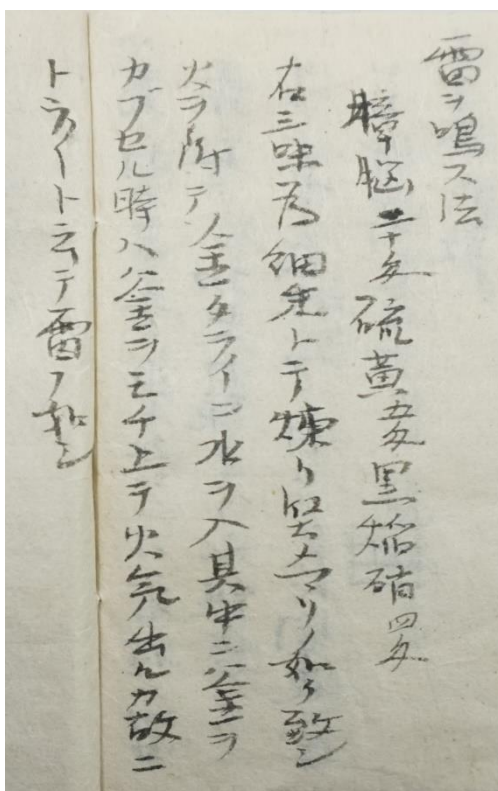 雷ヲ鳴ス法
樟脳二十匁硫黄五匁黒焔硝四匁
右三味為細末トテ煉リ堅メマリノ如ク致シ
火ヲ附テ金タライニ水ヲ入其中ニ釜ヲ
カブセル時ハ釜ヲモチ上テ火気出ルカ故ニ
トライト云テ雷ノ如シ